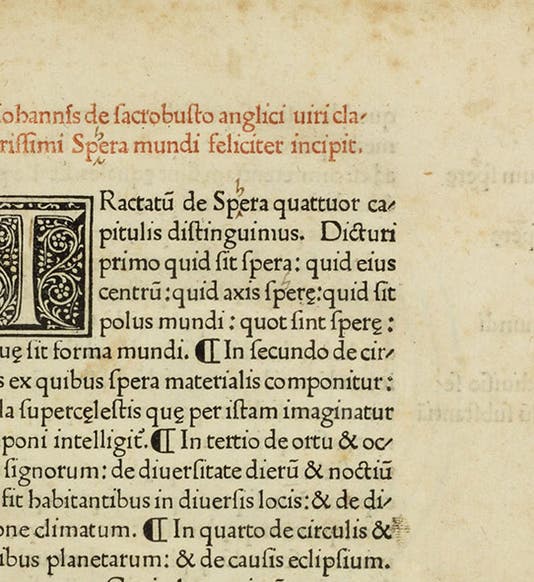 ohannſs de ſacrobuſto anglici uiri cla-
riſſimi Spera mundi feliciter incipit.
TRactatū de Spera quattuor ca-
pitulis diſtinguimus. Dicturi
primo quid ſit ſpera: quid eius
centrū: quid axis ſperę: quid ſit
polus mundi: quot ſint ſperę:
uę ſit forma mundi. ¶ In ſecundo de cir-
s ex quibus ſpera materialis componitur:
la ſupercęleſtis quę per iſtam imaginatur
poni intelligit̃. ¶ In tertio de ortu & oc-
ſignorum: de diuerſitate dierū & noctiū
fit habitantibus in diuerſis locis: & de di-
one climatum. ¶ In quarto de circulis &
ibus planetarum: & de cauſis eclipſium.